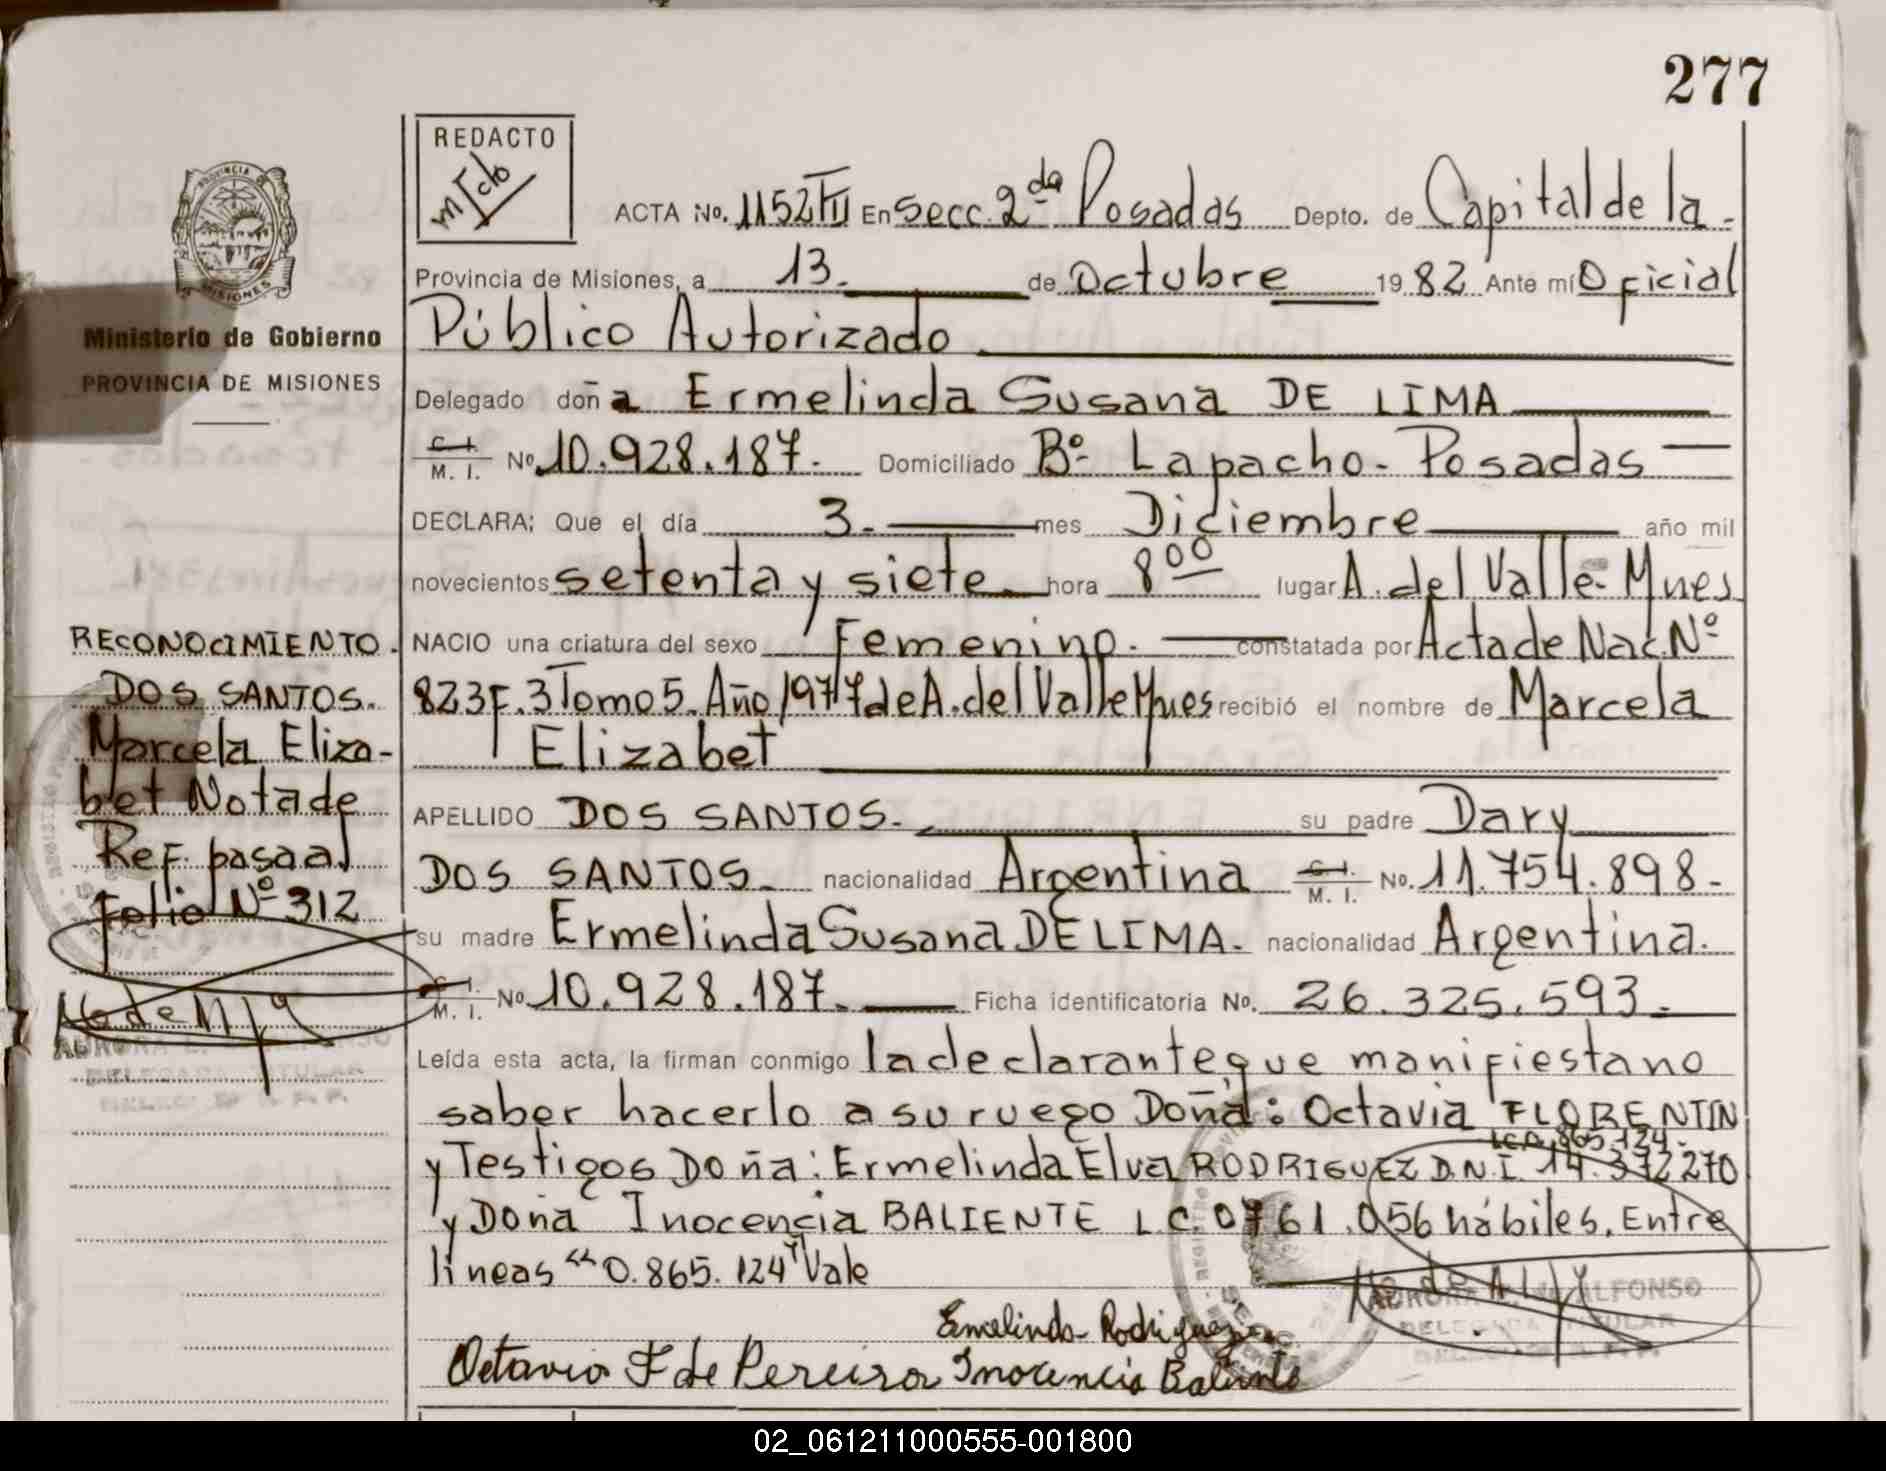 277
REDACTO
ACTA No. 1152 TIII En Secc. 2da Posadas Depto. de Capital de la
Provincia de Misiones, a 13. de Octubre 1982 Ante mí Oficial
Público Autorizado
Delegado doña Ermelinda Susana DE LIMA
C. I. M. I. No. 10.928.187. Domiciliado Bº Lapacho - Posadas
DECLARA: Que el día 3. mes Diciembre año mil
novecientos setenta y siete hora 8 00 lugar A. del Valle - Mnes
NACIO una criatura del sexo Femenino. constatada por Acta de Nac. Nº
823 F. 3 Tomo 5. Año 1977 de A. del Valle Mnes recibió el nombre de Marcela
Elizabet
APELLIDO DOS SANTOS. su padre Dary
DOS SANTOS. nacionalidad Argentina C. I. M. I. No. 11.754.898.
su madre Ermelinda Susana DE LIMA. nacionalidad Argentina.
C. I. M. I. No. 10.928.187. Ficha identificatoria No. 26.325.593.
Leída esta acta, la firman conmigo la declarante que manifiesta no
saber hacerlo a su ruego Doña: Octavia FLORENTIN
L.C. 0.865.124.
y Testigos Doña: Ermelinda Elva RODRIGUEZ D.N.I. 14.372270
y Doña Inocencia BALIENTE L.C. 0761.056 hábiles. Entre
líneas "0.865.124" Vale
Ermelinda Rodriguez
Octavia F de Pereira Inocencia Baliente
AURORA ALFONSO
DELEGADA TITULAR
PROVINCIA DE
MISIONES
Ministerio de Gobierno
PROVINCIA DE MISIONES
RECONOCIMIENTO.
DOS SANTOS.
Marcela Eliza-
bet Nota de
Ref. pasa al
Folio Nº 312
AURORA L. ALFONSO
DELEGADA TITULAR
02_061211000555-001800